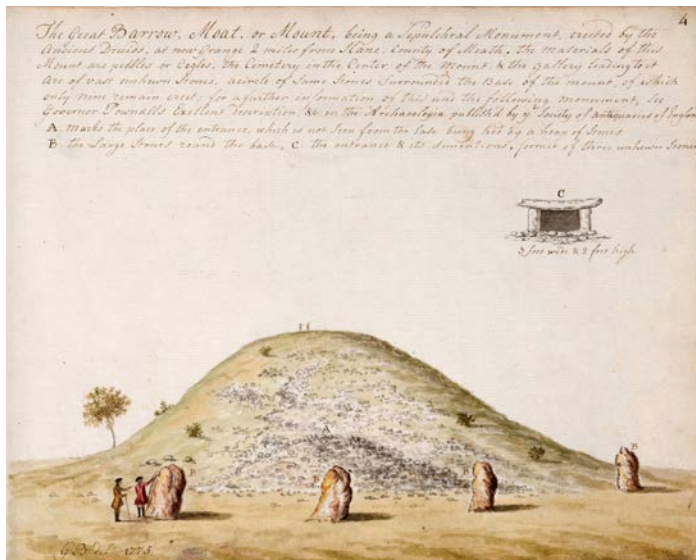 4
The Great Barrow, Moat, or Mount, being a Sepulchral Monument, erected by the
Ancient Druids, at new Grange 2 miles from Slane, County of Meath, the materials of this
Mount are pebbles or Cogles, the Cemetery in the Center of the Mount, & the gallery leading to it
are of vast unhewn Stones, a circle of Same Stones Surrounded the Base of the mount, of which
only nine remain erect, for a further information of this and the following monument, see
Governor Pownalls Exellent description, &c in the Archaeologia published by ye Society of antiquaries of England
A marks the place of the entrance, which is not Seen from the base being hid by a heap of Stones
B the Large Stones round the base, C the entrance & its dimentions, formed of three unhewn Stones
C
3 feet wide & 2 feet high
A
B
B
B
1775